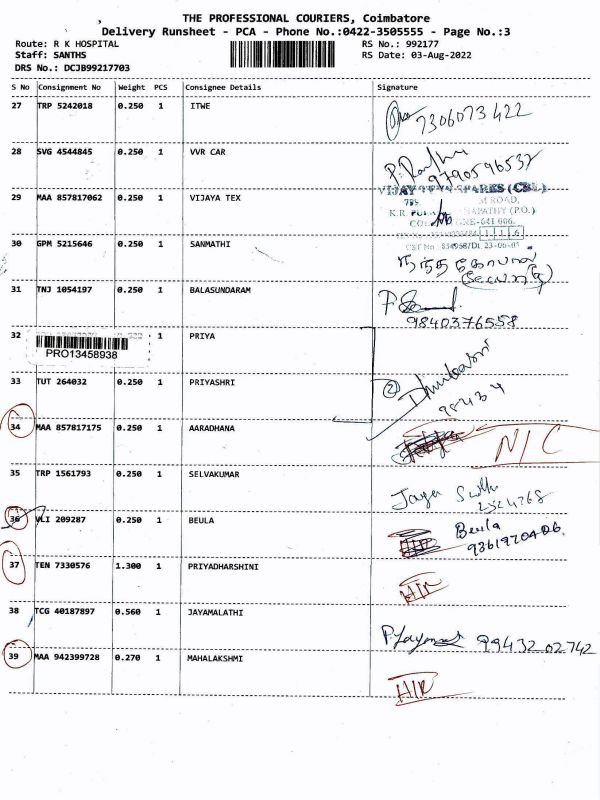 THE PROFESSIONAL COURIERS, Coimbatore
Delivery Runsheet - PCA - Phone No.:0422-3505555 - Page No.:3
Route: R K HOSPITAL RS No.: 992177
Staff: SANTHS RS Date: 03-Aug-2022
DRS No.: DCJB99217703
S No Consignment No Weight PCS Consignee Details Signature
27 TRP 5242018 0.250 1 ITWE 7306073422
28 SVG 4544845 0.250 1 VVR CAR
9790596532
29 MAA 857817062 0.250 1 VIJAYA TEX
SPARES (CBE)
M ROAD,
K.R. (P.O.)
641 006.
30 GPM 5215646 0.250 1 SANMATHI
31 TNJ 1054197 0.250 1 BALASUNDARAM
9840376558
32 1 PRIYA
PRO13458938
33 TUT 264032 0.250 1 PRIYASHRI
2
98434
34 MAA 857817175 0.250 1 AARADHANA N/C
35 TRP 1561793 0.250 1 SELVAKUMAR Jaya
36 VLI 209287 0.250 1 BEULA Beula
37 TEN 7330576 1.300 1 PRIYADHARSHINI
38 TCG 40187897 0.560 1 JAYAMALATHI 99432 02742
39 MAA 942399728 0.270 1 MAHALAKSHMI